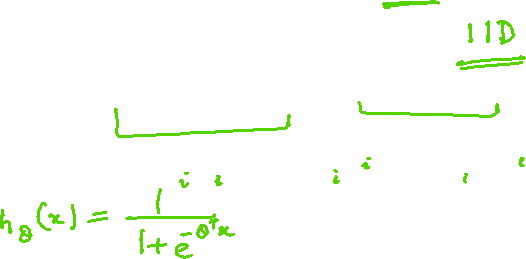 IID
i i i i i i
h_θ(x) = 1 / (1 + e^(-θ^T x))